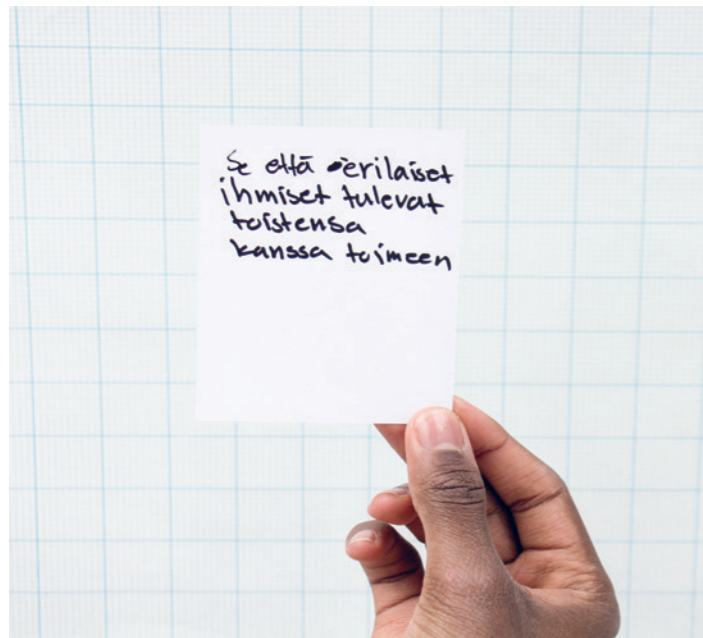 Se että erilaiset
ihmiset tulevat
toistensa
kanssa toimeen